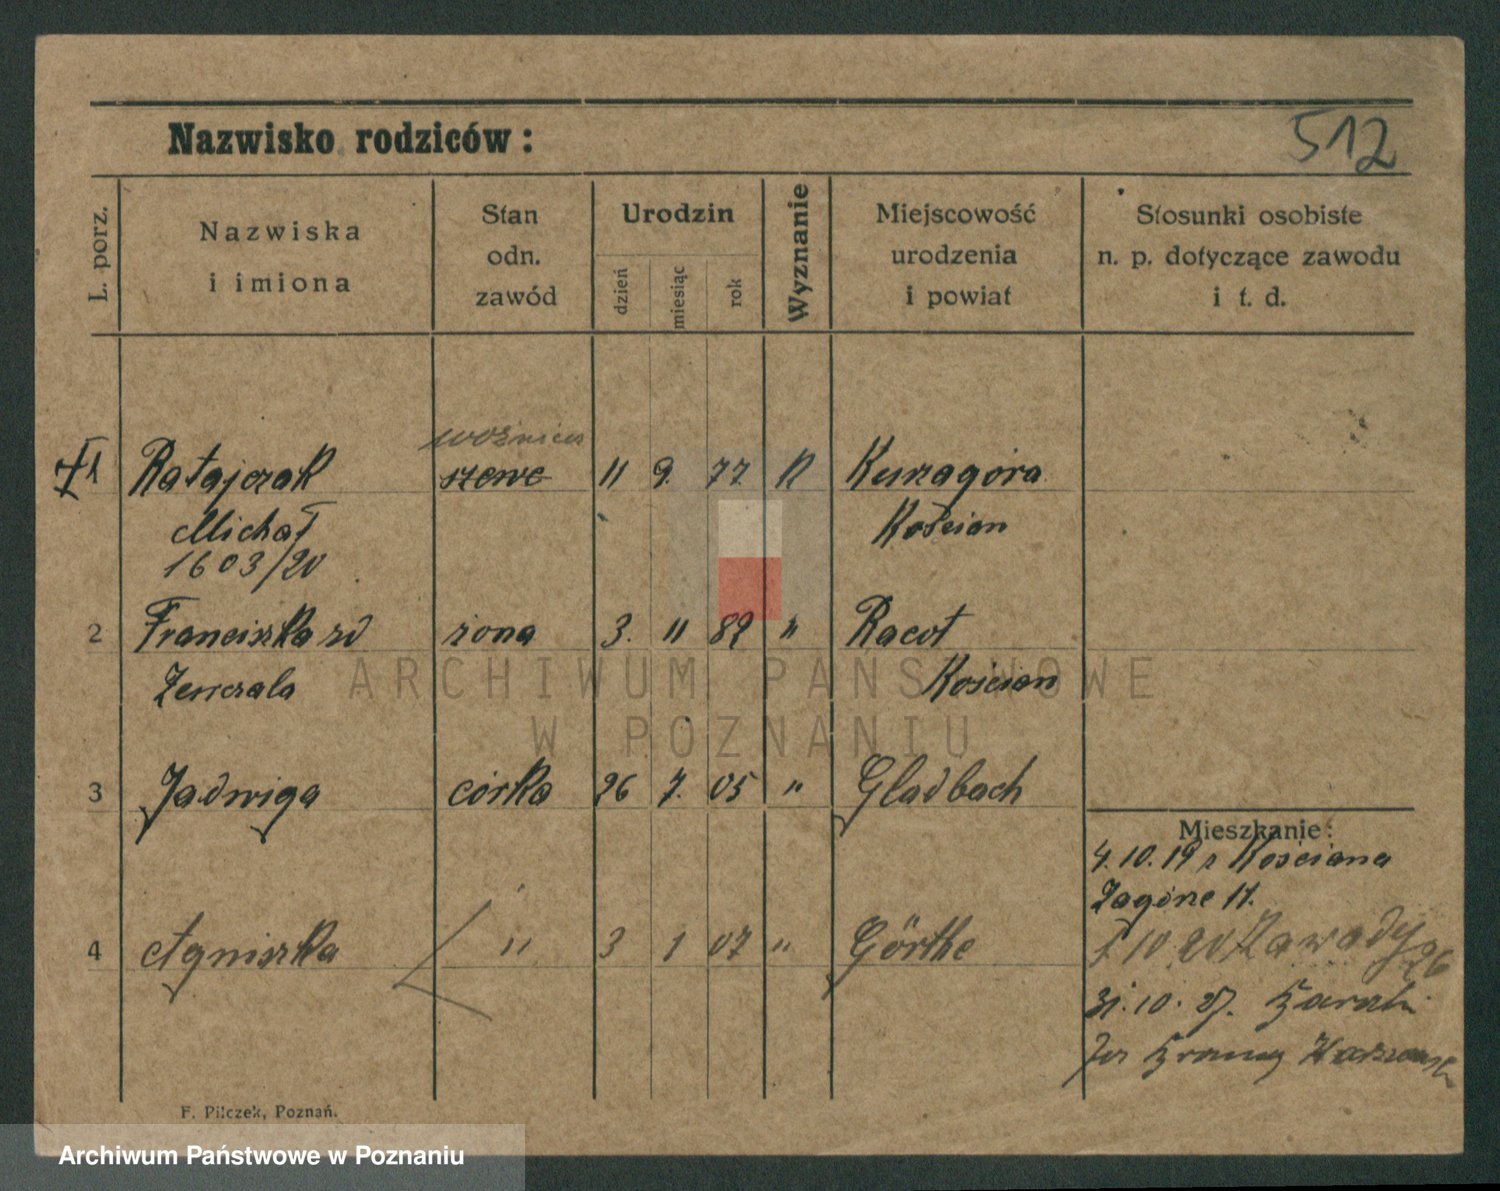 Nazwisko rodziców:
512
L. porz.
Nazwiska
i imiona
Stan
odn.
zawód
Urodzin
dzień
miesiąc
rok
Wyznanie
Miejscowość
urodzenia
i powiat
Stosunki osobiste
n. p. dotyczące zawodu
i t. d.
woźnica
1 Ratajczak szewc 11 9. 77 K Kurzagóra
Michał Kościan
1603/20
2 Franciszka zd żona 3. 11 82 " Racot
Kościan
3 Jadwiga córka 26 7. 05 " Gladbach
Mieszkanie:
4.10.19 z Kościana
Zagórze 11.
4 Agniszka " 3 1 07 " Görthe
1 10 20 Zawady 26
31.10.27.
F. Pilczek, Poznań.
ARCHIWUM PAŃSTWOWE
W POZNANIU
Archiwum Państwowe w Poznaniu